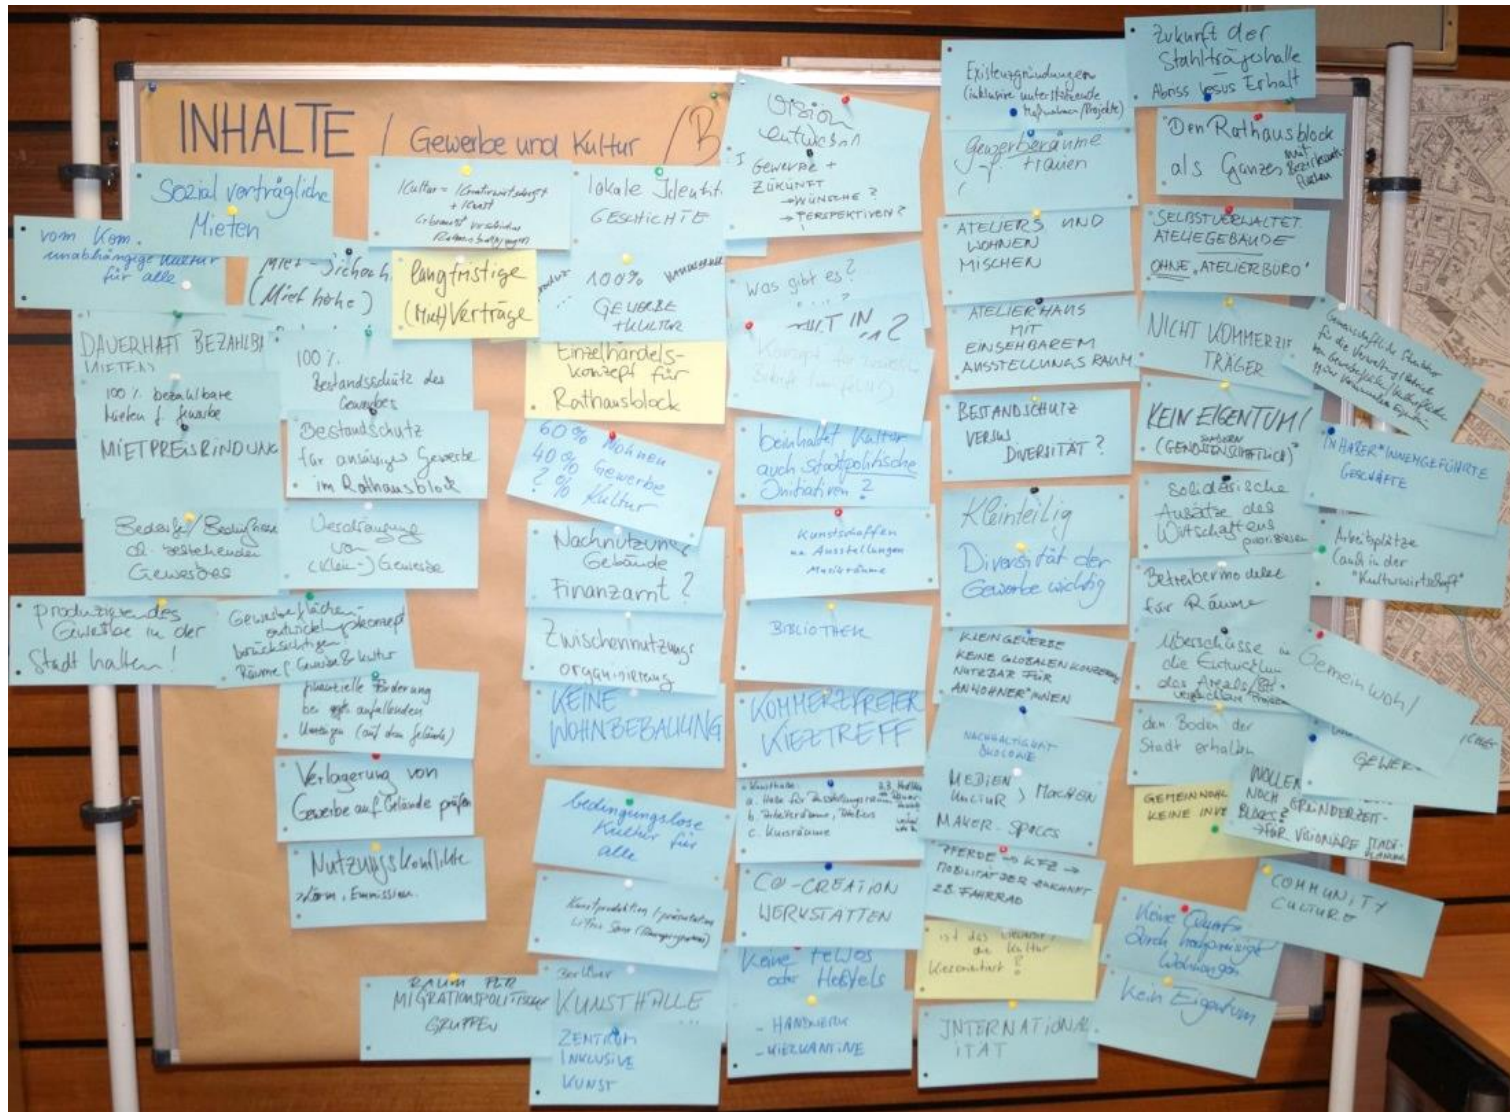 INHALTE / Gewerbe und Kultur / B
Sozial verträgliche
Mieten
vom Kom.
unabhängige Kultur
für alle
Miet-Sicherh
(Miethöhe)
DAUERHAFT BEZAHLBA
MIETEN
100% bezahlbare
Mieten f. Gewerbe
MIETPREISBINDUNG
Bedarfe/
d. bestehenden
Gewerbes
produzierendes
Gewerbe in der
Stadt halten!
100%
Bestandsschutz des
Gewerbes
Bestandschutz
für ansässiges Gewerbe
im Rathausblock
Verdrängung
von
(Klein-) Gewerbe
Gewerbeflächen-
entwicklungskonzept
berücksichtigen
Räume f. Gewerbe & Kultur
finanzielle Förderung
bei anfallenden
Umzügen (auf dem Gelände)
Verlagerung von
Gewerbe auf Gelände prüfen
Nutzungskonflikte
Lärm, Emmission.
RAUM FÜR
MIGRATIONSPOLITISCHE
GRUPPEN
Kultur = Kreativwirtschaft
+ Kunst
langfristige
(Miet)Verträge
lokale Identit
GESCHICHTE
100%
GEWERBE
+ KULTUR
Einzelhandels-
konzept für
Rathausblock
60% Wohnen
40% Gewerbe
? % Kultur
Nachnutzung
Gebäude
Finanzamt?
Zwischennutzung
organisierung
KEINE
WOHNBEBAUUNG
bedingungslose
Kultur für
alle
Kunstproduktion / präsentation
Berliner
KUNSTHALLE
ZENTRUM
INKLUSIVE
KUNST
Vision
entwickeln
GEWERBE +
ZUKUNFT
→ WÜNSCHE?
→ PERSPEKTIVEN?
Was gibt es?
beinhaltet Kultur
auch stadtpolitische
Initiativen?
Kunstschaffen
Ausstellungen
Musikräume
BIBLIOTHEK
KOMMERZFREIER
KIEZTREFF
Kunsthalle
b. Atelierräume, Ateliers
c. Kursräume
CO-CREATION
WERKSTÄTTEN
Keine FeWos
oder Ho(s)tels
- HANDWERK
- KIEZKANTINE
Existenzgründungen
(inklusive unterstützende
Maßnahmen/Projekte)
Gewerberäume
f. Frauen
ATELIERS UND
WOHNEN
MISCHEN
ATELIERHAUS
MIT
EINSEHBAREM
AUSSTELLUNGSRAUM
BESTANDSCHUTZ
VERSUS
DIVERSITÄT?
Kleinteilig
Diversität der
Gewerbe wichtig
KLEINGEWERBE
KEINE GLOBALEN KONZERNE
NUTZBAR FÜR
ANWOHNER*INNEN
NACHHALTIGKEIT
ÖKOLOGIE
MEDIEN
KULTUR > MACHEN
MAKER-SPACES
PFERDE → KFZ →
MOBILITÄT DER ZUKUNFT
Z.B. FAHRRAD
ist das
die Kultur
Kiezorientiert?
INTERNATIONAL
ITÄT
Zukunft der
Stahlträgerhalle
Abriss versus Erhalt
Den Rathausblock
als Ganzes mit
Bezirksamt-
flächen
SELBSTVERWALTET.
ATELIEGEBÄUDE
OHNE "ATELIERBÜRO"
NICHT KOMMERZIE
TRÄGER
KEIN EIGENTUM!
(SONDERN
GENOSSENSCHAFTLICH)
solidarische
Ansätze des
Wirtschaftens
priorisieren
Betreibermodelle
für Räume
Überschüsse in
die Entwicklun
des Areals
den Boden der
Stadt erhalten
GEMEINWOHL
KEINE INVE
Keine Querf
durch hochpreisige
Wohnungen
Kein Eigentum
INHABER*INNENGEFÜHRTE
GESCHÄFTE
Arbeitsplätze
(auch in der
"Kulturwirtschaft"
Gemeinwohl
GEWER
WOLLEN
NOCH GRÜNDERZEIT-
BLOCKS?
→ FÜR VISIONÄRE STADT-
PLANUNG
COMMUNITY
CULTURE